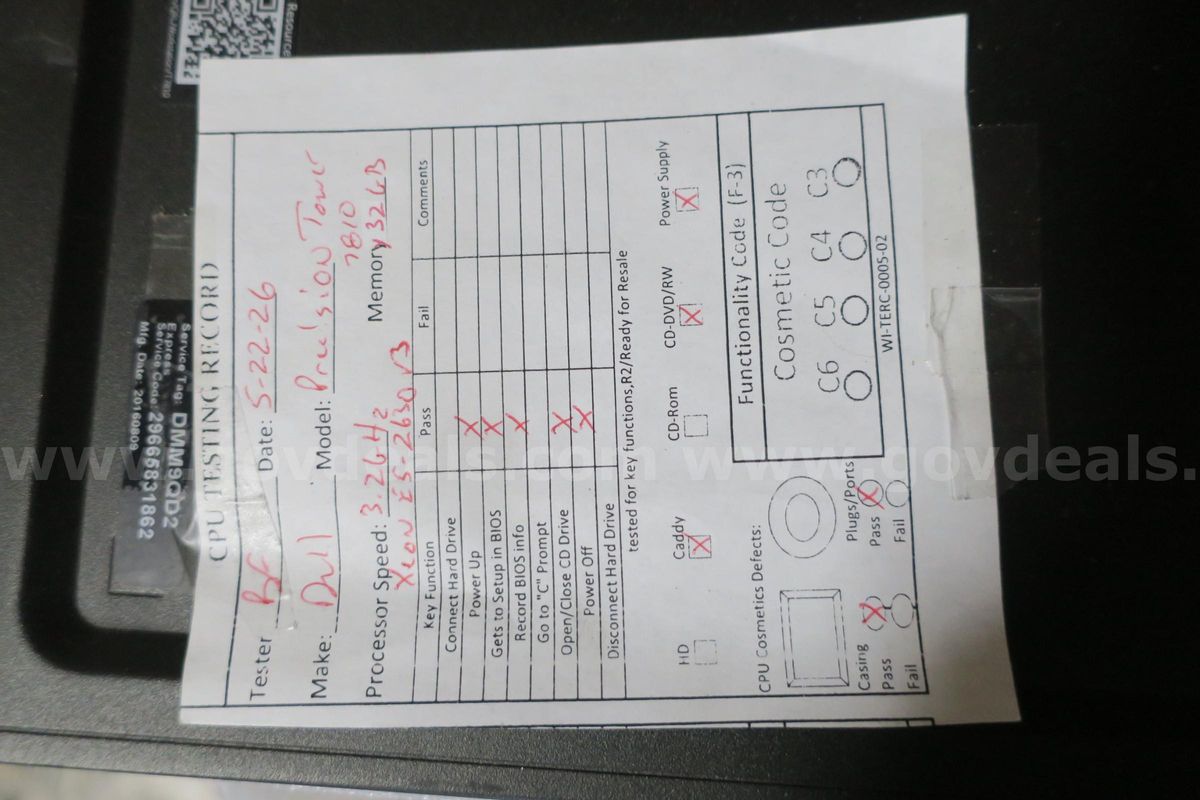 CPU TESTING RECORD
Tester BF Date: 5-22-26
Make: Dell Model: Precision Tower
7810
Processor Speed: 3.2GHz Memory 32GB
Xeon E5-2630 v3
Key Function Pass Fail Comments
Connect Hard Drive
Power Up X
Gets to Setup in BIOS X
Record BIOS info X
Go to "C" Prompt
Open/Close CD Drive X
Power Off X
Disconnect Hard Drive
tested for key functions,R2/Ready for Resale
HD Caddy CD-Rom CD-DVD/RW Power Supply
X X X
CPU Cosmetics Defects:
Casing Plugs/Ports
Pass X Pass X
Fail Fail
Functionality Code (F-3)
Cosmetic Code
C6 C5 C4 C3
WI-TERC-0005-02
Service Tag: DMM9QD2
Express
Service Code: 29665831862
Mfg. Date: 20160809
Resource
www.govdeals.com www.govdeals.